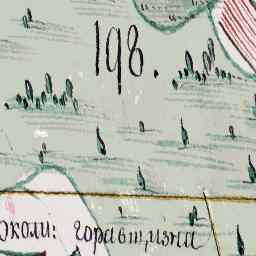 198.
околи: горавщизна